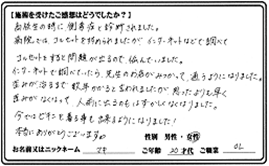 【施術を受けたご感想はどうでしたか？】
高校生の時に側弯症と診断されました。
病院では、コルセットを勧められましたが インターネットなどで調べて
コルセットをすると問題が出るので、悩んでいました。
インターネットで調べていたら、先生のお名前がみつかって、通うようになりました。
歪みが治るまで数年かかると言われましたが 思ったよりも早く
歪みがなくなって、人前に出るのもはずかしくなくなりました。
今ではビキニを着る事も出来るようになりました！
本当にありがとうございます。
性別 男性・女性
お名前又はニックネーム マキ ご年齢 20才代 ご職業 OL